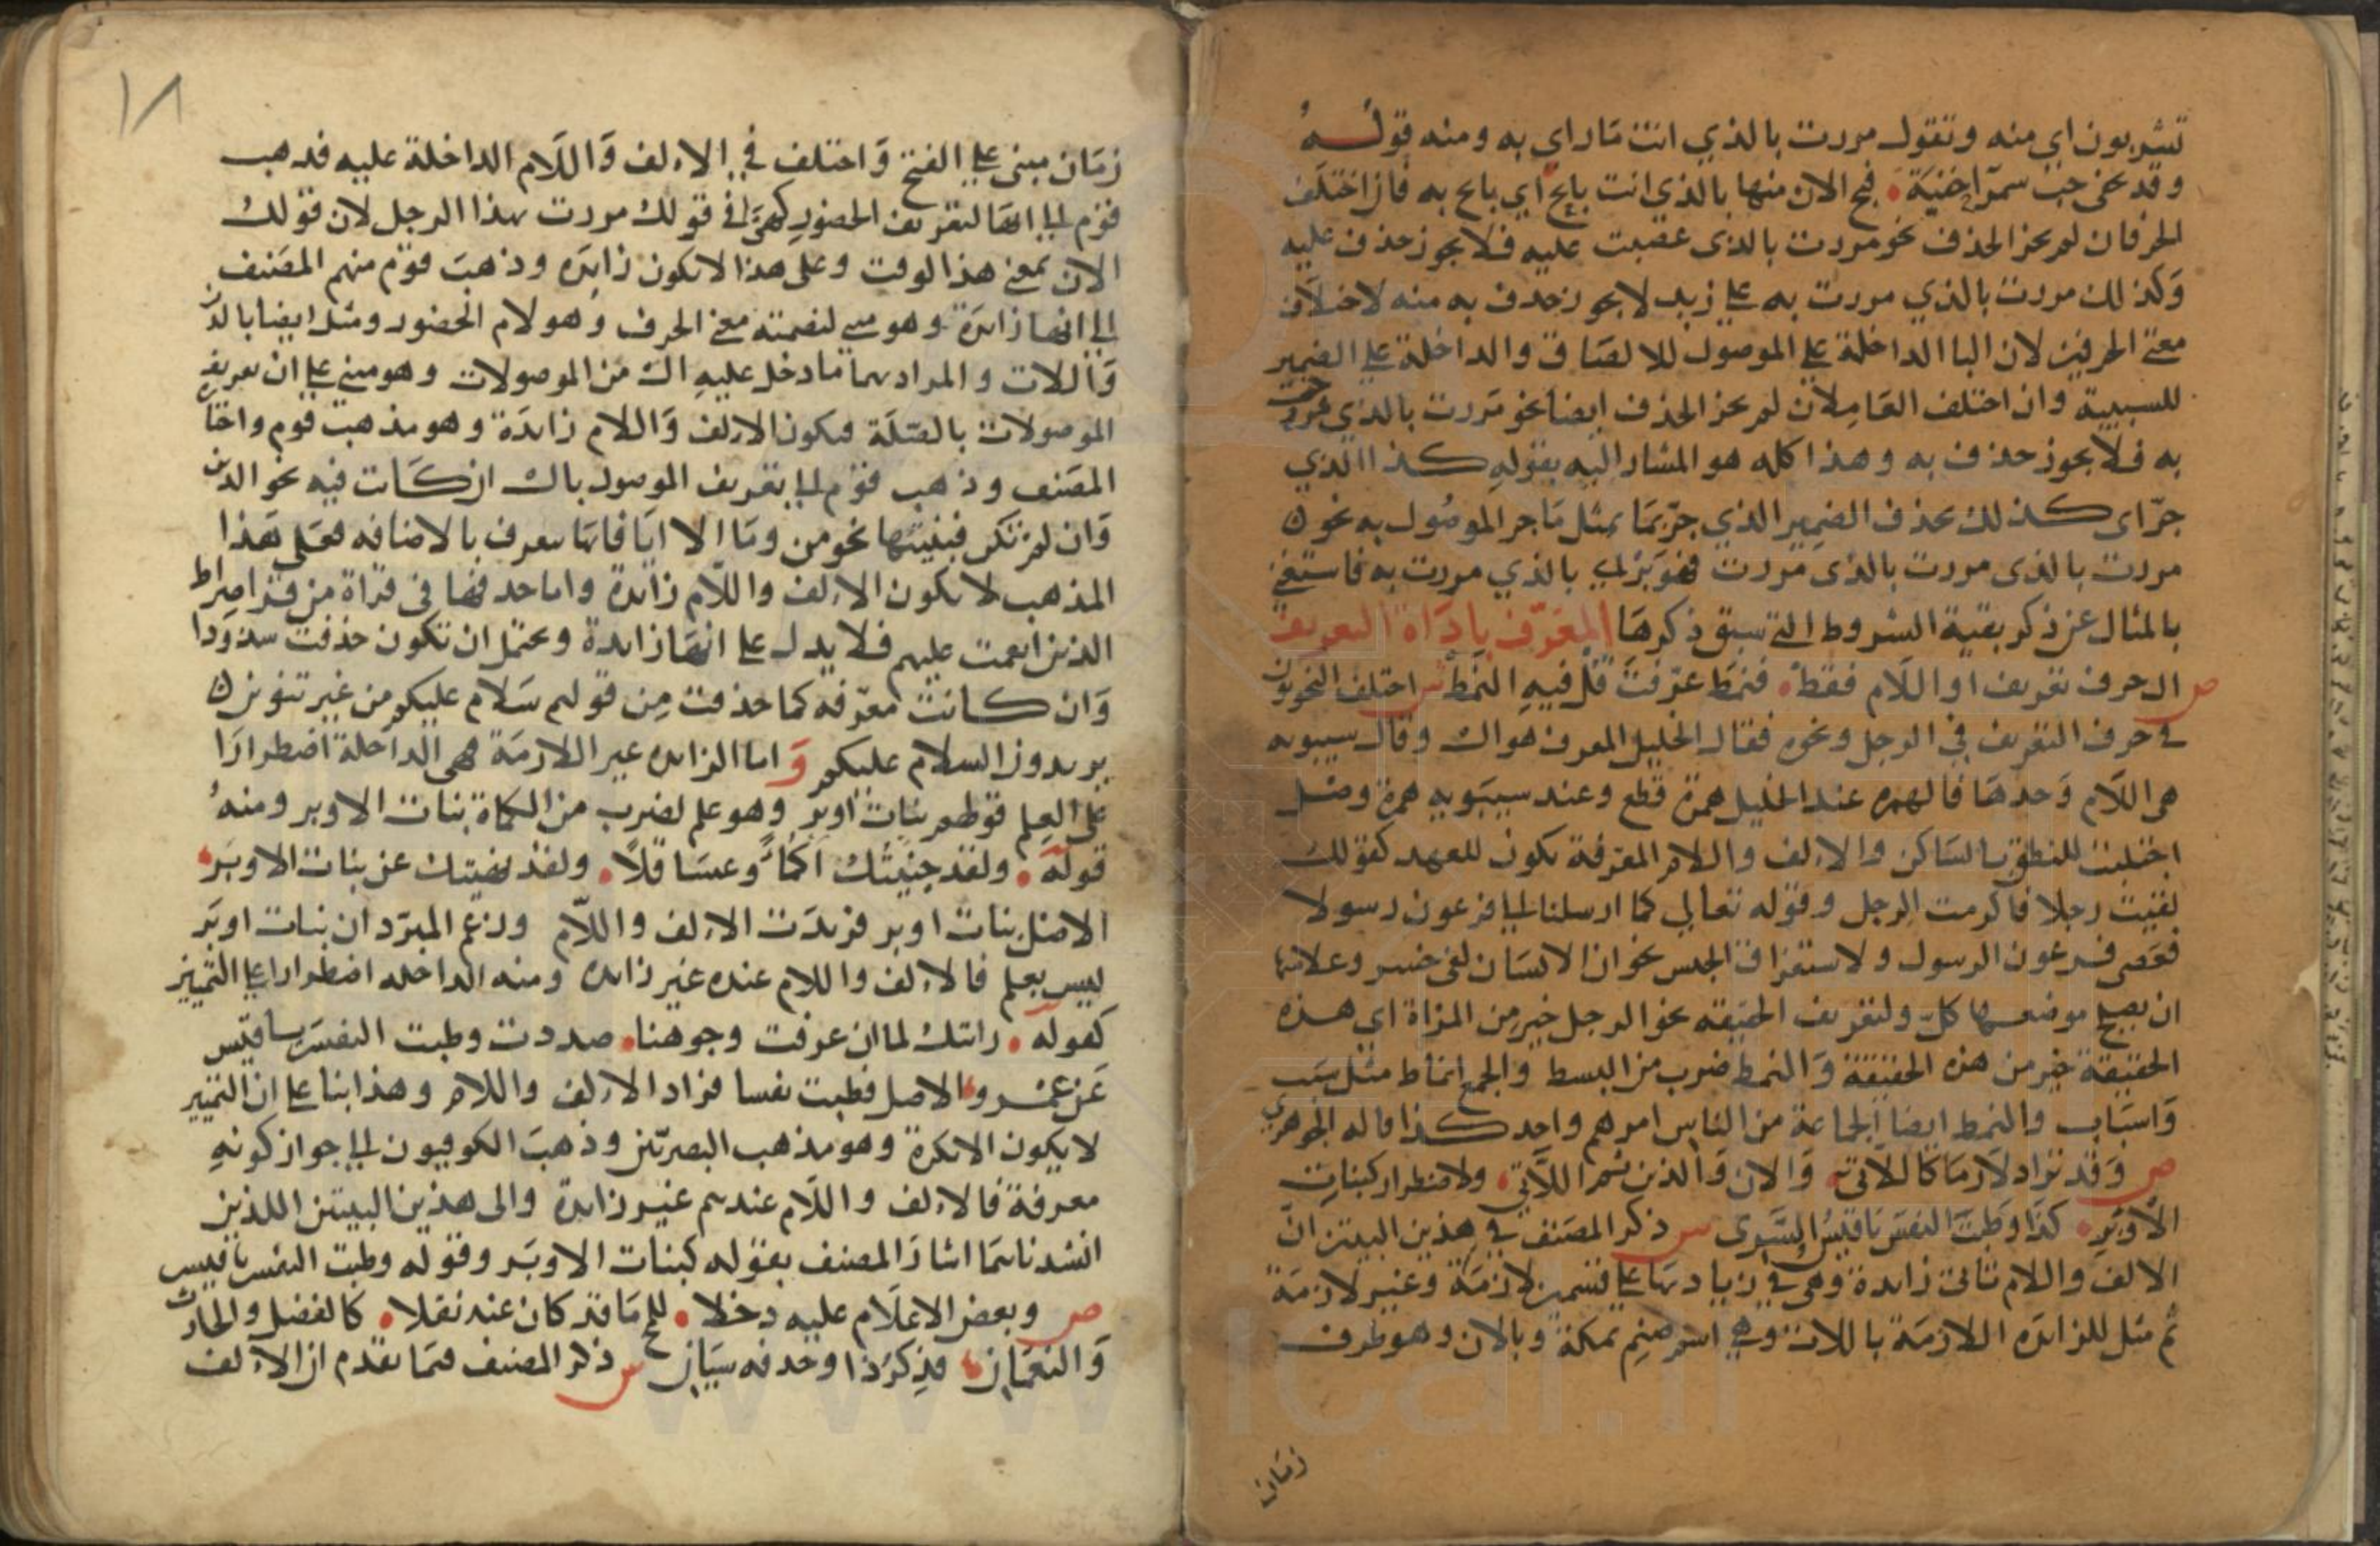 تشربون اي منه وتقول مررت بالذي انت مار اي به ومنه قوله
وقد كنت تخفي حب سمراء حقبة فبح الان منها بالذي انت بايح اي بايح به فان اختلف
الحرفان لم يجز الحذف نحو مررت بالذي غضبت عليه فلا يجوز حذف عليه
وكذلك مررت بالذي مررت به على زيد لا يجوز حذف به منه لاختلاف
معنى الحرفين لان البا الداخلة على الموصول للالصاق والداخلة على الضمير
للسببية وان اختلف العاملان لم يجز الحذف ايضا نحو مررت بالذي فرحت
به فلا يجوز حذف به وهذا كله هو المشار اليه بقوله كذا الذي
جر اي كذلك يحذف الضمير الذي جر بما بمثل ما جر الموصول به نحو
مررت بالذي مررت بالذي مررت فهو بر اي بالذي مررت به فاستغنى
بالمثال عن ذكر بقية الشروط التي سبق ذكرها المعرف باداة التعريف
ص ال حرف تعريف او اللام فقط فنمط عرفت قل فيه النمط ش اختلف النحويون
في حرف التعريف في الرجل ونحوه فقال الخليل المعرف هو ال وقال سيبويه
هي اللام وحدها فالهمزه عند الخليل همزة قطع وعند سيبويه همزة وصل
اجتلبت للنطق بالساكن والالف واللام المعرفة تكون للعهد كقولك
لقيت رجلا فاكرمت الرجل وقوله تعالى كما ارسلنا الى فرعون رسولا
فعصى فرعون الرسول ولاستغراق الجنس نحو ان الانسان لفي خسر وعلامتها
ان يصلح موضعها كل ولتعريف الحقيقه نحو الرجل خير من المراة اي هذه
الحقيقة خير من هذه الحقيقة والنمط ضرب من البسط والجمع انماط مثل سبب
واسباب والنمط ايضا الجماعة من الناس امرهم واحد كذا قاله الجوهري
ص وقد تزاد لازما كاللاتي والان والذين ثم اللاتي ولاضطرار كبنات
الاوبر كذا وطبت النفس يا قيس السري ش ذكر المصنف في هذين البيتين ان
الالف واللام تاتي زايدة وهي في زيادتها على قسمين لازمة وغير لازمة
ثم مثل للزايده اللازمة باللات وهي اسم صنم بمكة وبالان وهو ظرف
زمان
١٨
زمان مبني على الفتح واختلف في الالف واللام الداخلة عليه فذهب
قوم الى انها لتعريف الحضور كهي في قولك مررت بهذا الرجل لان قولك
الان بمعنى هذا الوقت وعلى هذا لا تكون زايده وذهب قوم منهم المصنف
الى انها زايدة وهو مبني لتضمنه معنى الحرف وهو لام الحضور ومثل ايضا بالذين
واللات والمراد بهما ما دخل عليه ال من الموصولات وهو مبني على ان تعريف
الموصولات بالصلة فتكون الالف واللام زايدة وهو مذهب قوم واختاره
المصنف وذهب قوم الى تعريف الموصول بال ان كانت فيه نحو الذي
وان لم تكن فبنيتها نحو من وما الا ايا فانها تتعرف بالاضافه فعلى هذا
المذهب لا تكون الالف واللام زايدة واما حذفها في قراة من قرا صراط
الذين انعمت عليهم فلا يدل على انها زايدة ويحتمل ان تكون حذفت شذوذا
وان كانت معرفه كما حذفت من قولهم سلام عليكم من غير تنوين
يريدون السلام عليكم واما الزايده غير اللازمة فهي الداخلة اضطرارا
على العلم قولهم بنات اوبر وهو علم لضرب من الكماة بنات الاوبر ومنه
قوله ولقد جنيتك اكمأ وعساقلا ولقد نهيتك عن بنات الاوبر
الاصل بنات اوبر فزيدت الالف واللام وزعم المبرد ان بنات اوبر
ليس بعلم فالالف واللام عنده غير زايده ومنه الداخله اضطرارا على التمييز
كقوله رايتك لما ان عرفت وجوهنا صددت وطبت النفس يا قيس
عن عمرو والاصل فطبت نفسا فزاد الالف واللام وهذا بنا على ان التمييز
لا يكون الا نكرة وهو مذهب البصريين وذهب الكوفيون الى جواز كونه
معرفة فالالف واللام عندهم غير زايدة والى هذين البيتين اللذين
انشدناهما اشار المصنف بقوله كبنات الاوبر وقوله وطبت النفس يا قيس
ص وبعض الاعلام عليه دخلا للمح ما قد كان عنه نقلا كالفضل والحارث
والنعمان فذكر ذا وحذفه سيان ش ذكر المصنف فيما تقدم ان الالف